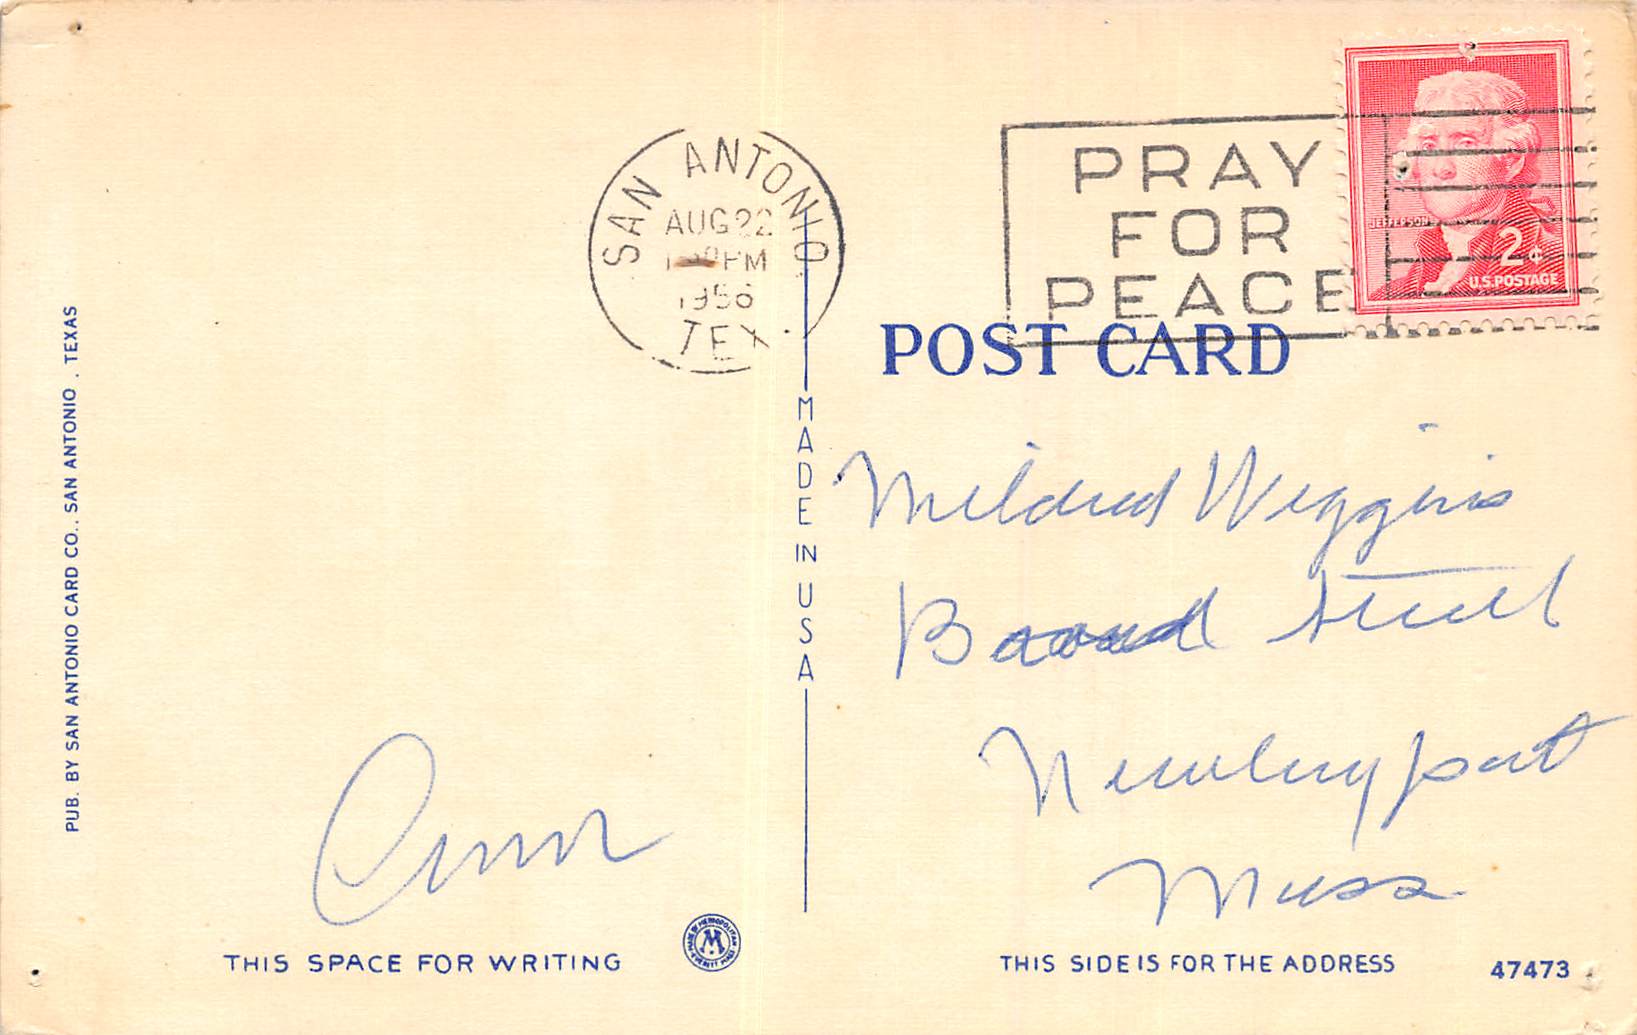 PUB. BY SAN ANTONIO CARD CO., SAN ANTONIO, TEXAS
SAN ANTONIO
AUG 22
PM
1956
TEX
PRAY
FOR
PEACE
JEFFERSON
2¢
U.S. POSTAGE
POST CARD
MADE IN USA
Mildred Wiggins
Broad Street
Newburyport
Mass
Ann
THIS SPACE FOR WRITING
MADE BY METROPOLITAN
M
EVERETT MASS
THIS SIDE IS FOR THE ADDRESS
47473